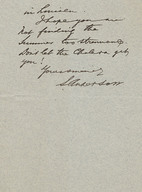 in London.
I hope you are
not finding the
summer too strenuous.
Don't let the Cholera get
you!
Yours sincerely